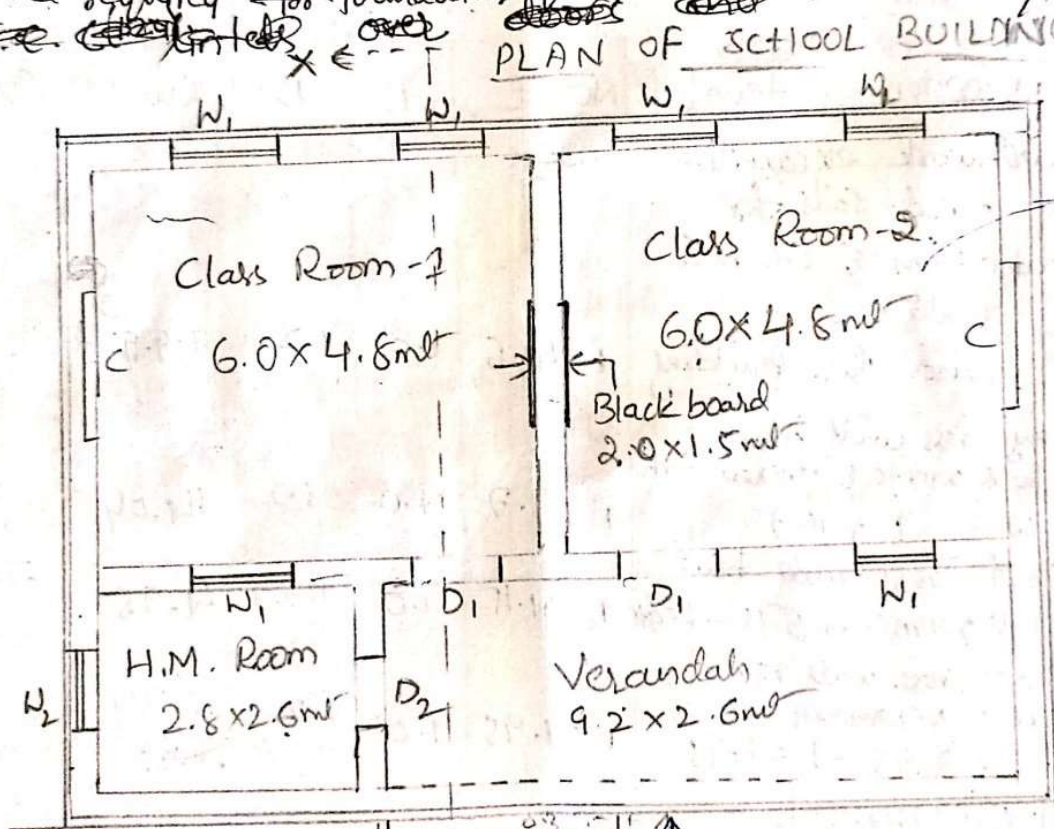 over
X
PLAN OF SCHOOL BUILDING
W1 W1 W1 W2
Class Room-1
6.0 X 4.8mt
Class Room-2.
6.0 X 4.8mt
C
C
Black board
2.0 X 1.5mt
W1
D1
D1
W1
H.M. Room
2.8 X 2.6mt
W2
D2
Verandah
9.2 X 2.6mt